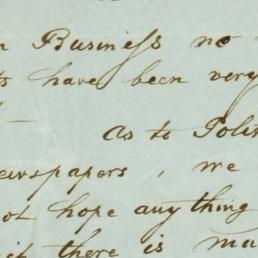 n Business no
ts have been very
As to Polit
ewspapers, we
not hope anything
if there is ma